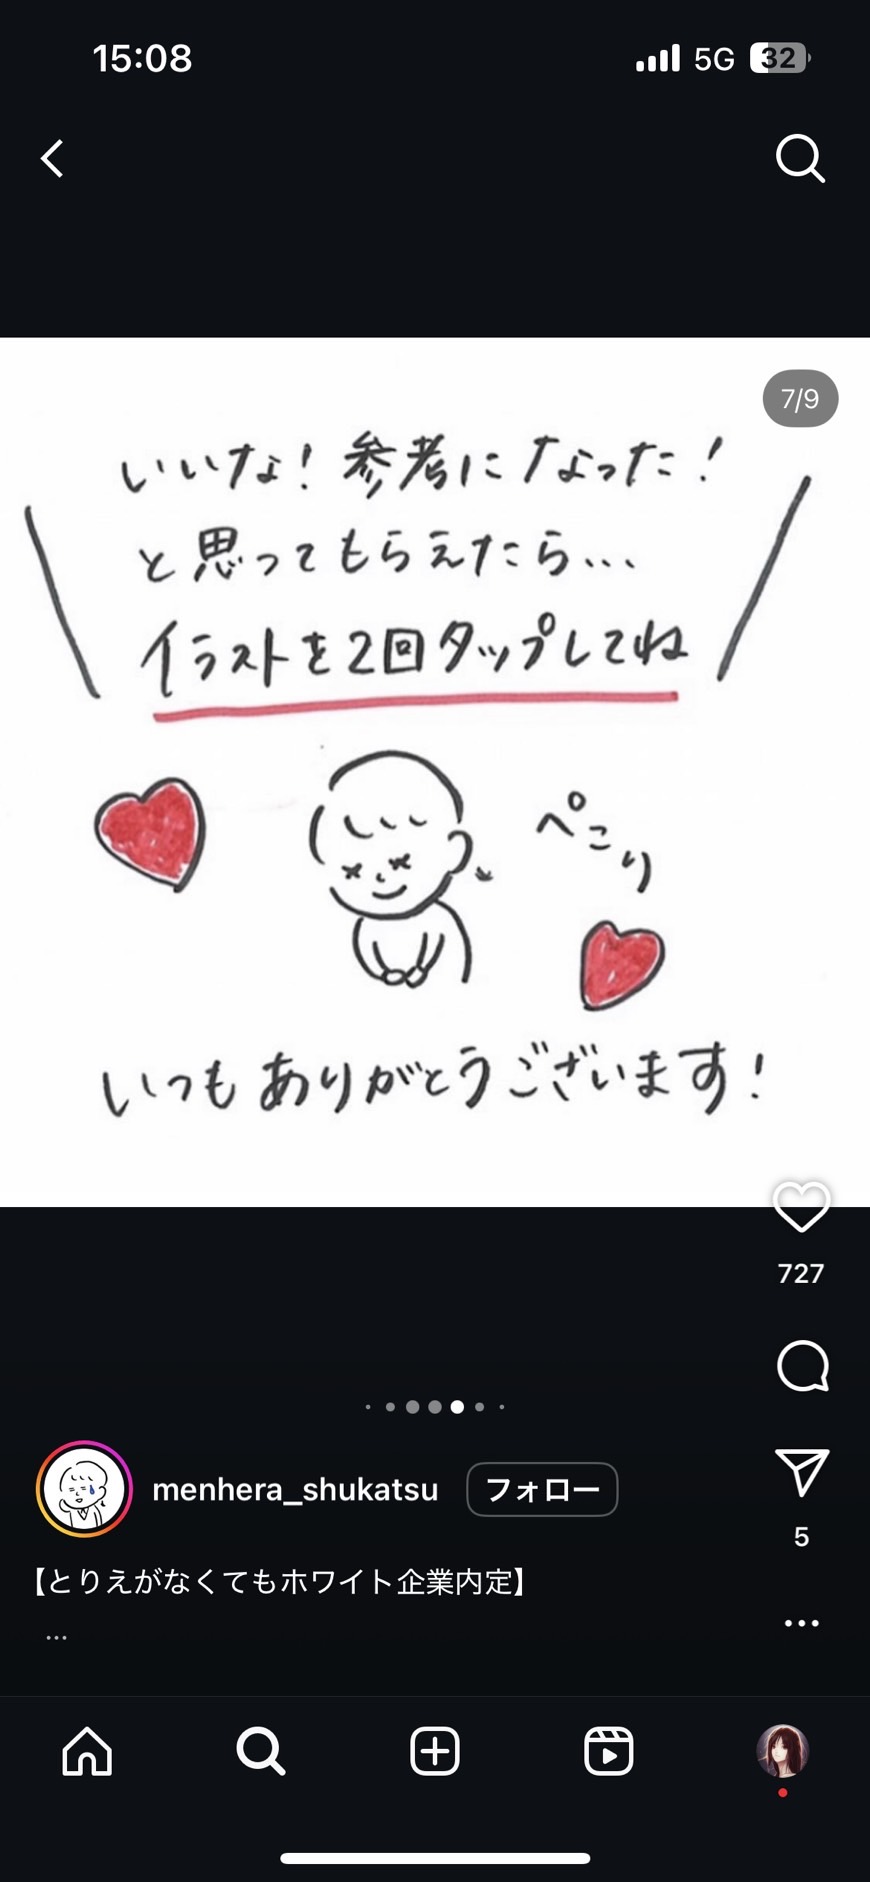 15:08
5G
32
7/9
いいな！参考になった！
と思ってもらえたら...
イラストを2回タップしてね
ぺこり
いつもありがとうございます！
727
menhera_shukatsu
フォロー
5
【とりえがなくてもホワイト企業内定】
...